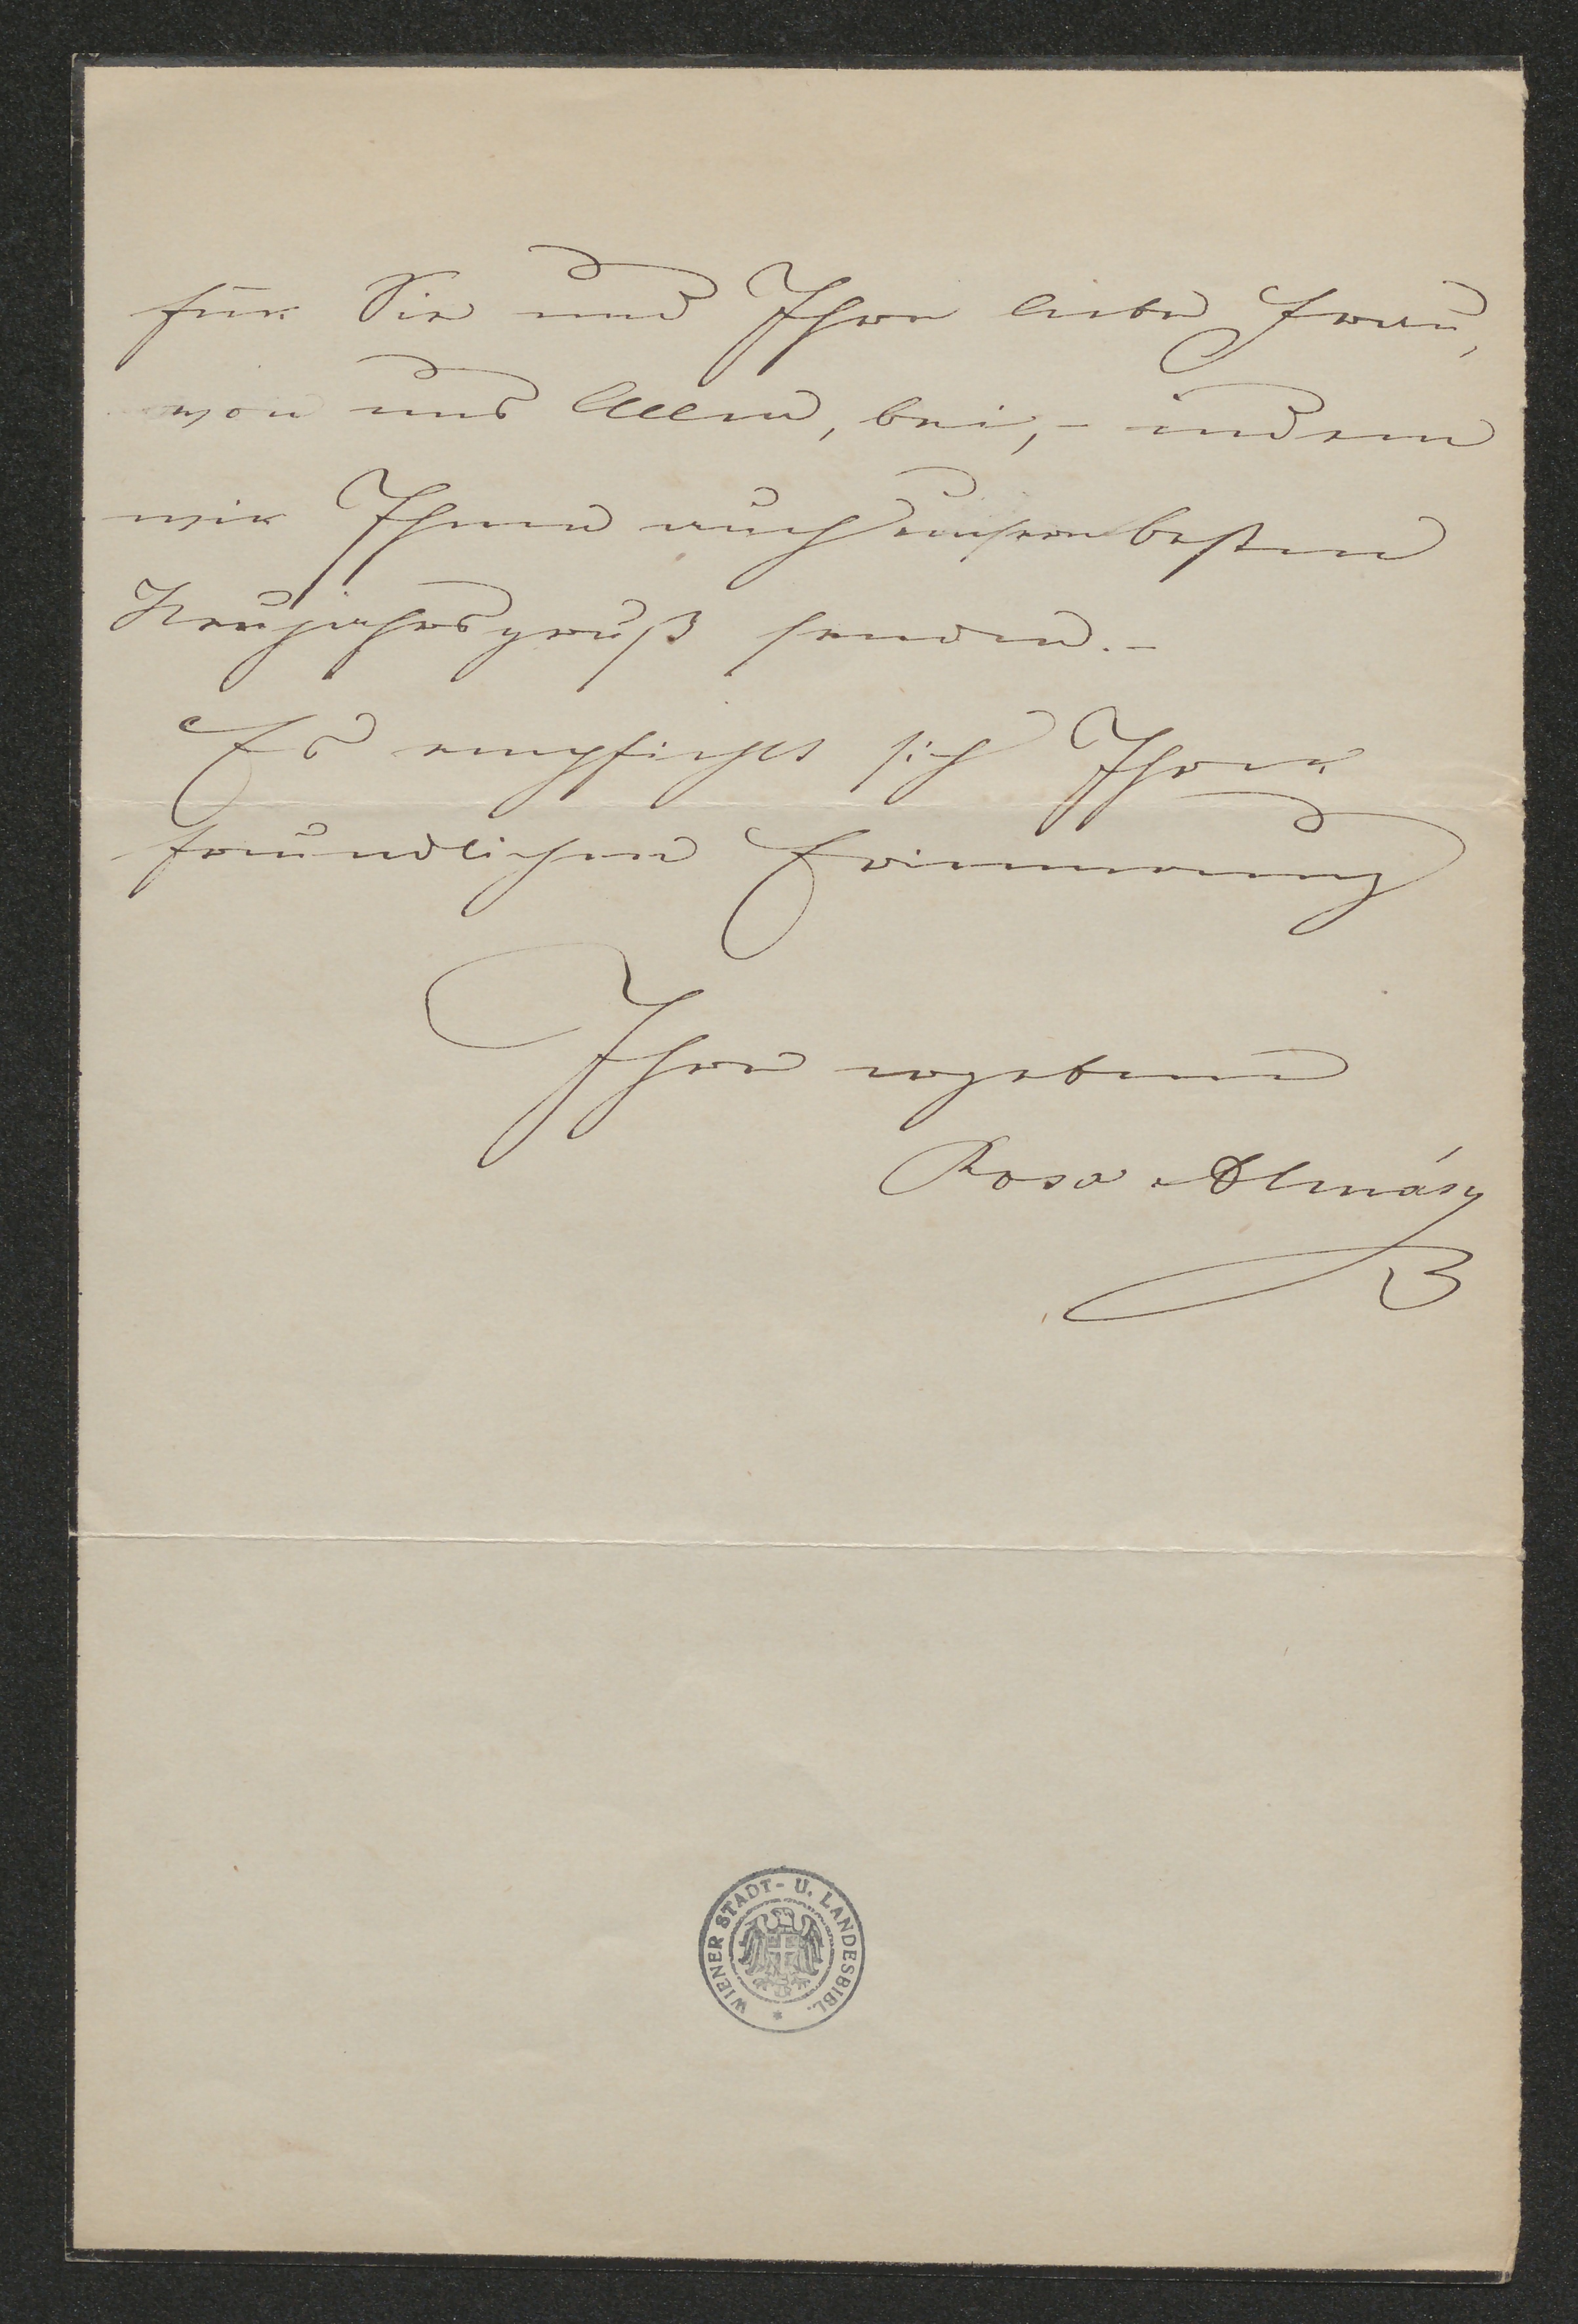 für Sie und Ihre liebe Frau,
von uns Allen, bei, - indem
wir Ihnen auch unseren besten
Neujahrsgruß senden. -
Es empfiehlt sich Ihrer
freundlichen Erinnerung
Ihre ergebene
Rosa Almásy
WIENER STADT- U. LANDESBIBL.